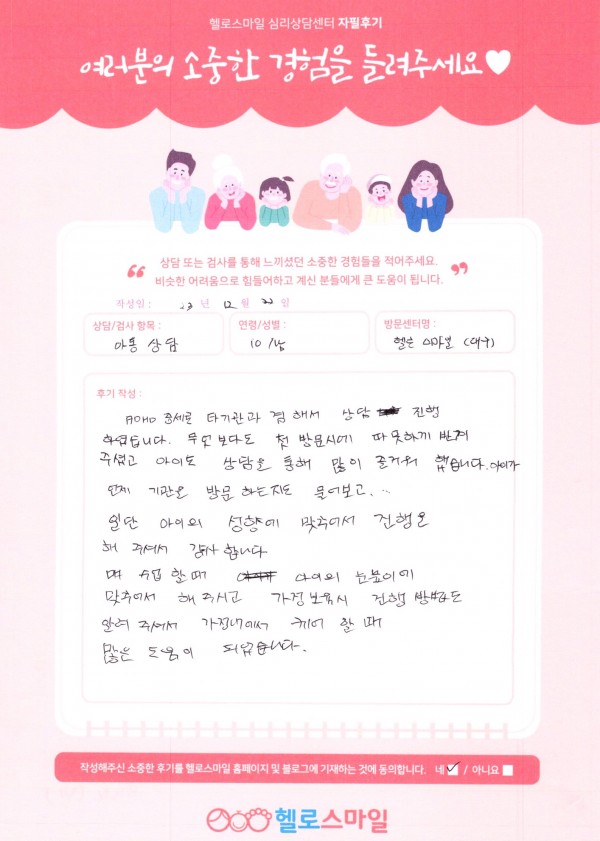 헬로스마일 심리상담센터 자필후기
여러분의 소중한 경험을 들려주세요♥
상담 또는 검사를 통해 느끼셨던 소중한 경험들을 적어주세요.
비슷한 어려움으로 힘들어하고 계신 분들에게 큰 도움이 됩니다.
작성일 : 23 년 12 월 22 일
상담/검사 항목 :
아동 상담
연령/성별 :
10 / 남
방문센터명 :
헬로 스마일 (대구)
후기 작성 :
ADHD 증세로 타기관과 겸해서 상담 진행
하였습니다. 무엇보다도 첫 방문시에 따뜻하게 반겨
주셨고 아이도 상담을 통해 많이 즐거워 했습니다. 아이가
언제 기관을 방문 하는지도 물어보고...
일단 아이의 성향에 맞추어서 진행을
해 주셔서 감사 합니다
매 수업 할때 아이의 눈높이에
맞추어서 해 주시고 가정 보육시 진행 방법도
알려 주셔서 가정내에서 케어 할 때
많은 도움이 되었습니다.
작성해주신 소중한 후기를 헬로스마일 홈페이지 및 블로그에 기재하는 것에 동의합니다. 네 ✓ / 아니요
헬로스마일